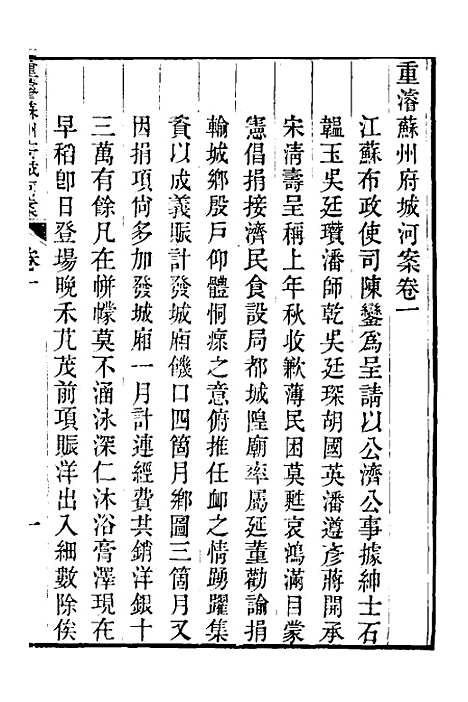 重濬蘇州府城河案卷一
江蘇布政使司陳鑾爲呈請以公濟公事據紳士石
韞玉吳廷瓚潘師乾吳廷琛胡國英潘遵彥蔣開承
宋淸壽呈稱上年秋收歉薄民困莫甦哀鴻滿目蒙
憲倡捐接濟民食設局都城隍廟率屬延董勸諭捐
輸城鄉殷戶仰體恫瘝之意俯推任卹之情踴躍集
貲以成義賑計發城廂饑口四箇月鄉圖三箇月又
因捐項尙多加發城廂一月計連經費共銷洋銀十
三萬有餘凡在帡幪莫不涵泳深仁沐浴膏澤現在
早稻卽日登場晚禾芃茂前項賑洋出入細數除俟
重濬蘇州府城河案
卷一
一